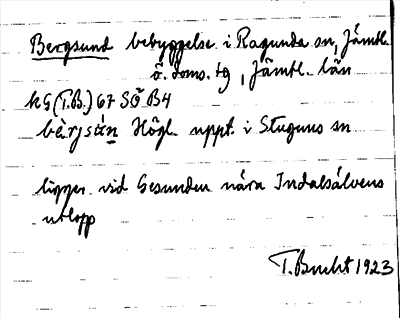 Bergsund bebyggelse i Ragunda sn, Jämtl.
ö. doms. tg, Jämtl. län
kG (T.B.) 67 SÖ B4
bàrjsún Högl. uppt. i Stuguns sn
ligger vid Gesunden nära Indalsälvens
utlopp
T. Bucht 1923